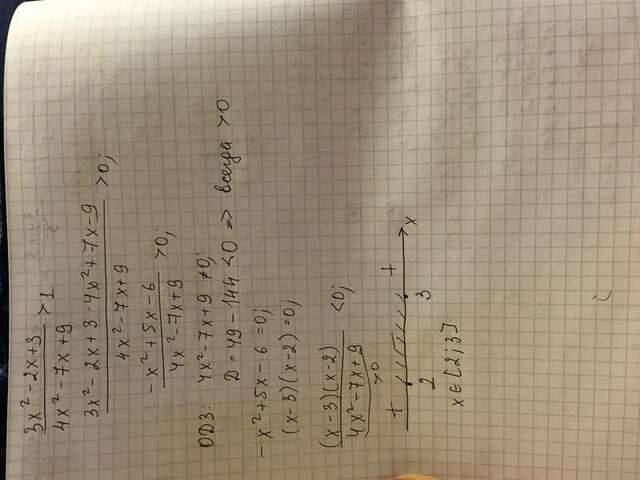 3x² - 2x + 3 / 4x² - 7x + 9 > 1
3x² - 2x + 3 - 4x² + 7x - 9 / 4x² - 7x + 9 > 0;
-x² + 5x - 6 / 4x² - 7x + 9 > 0;
ОДЗ: 4x² - 7x + 9 ≠ 0;
D = 49 - 144 < 0 => всегда > 0
-x² + 5x - 6 = 0;
(x - 3)(x - 2) = 0;
(x - 3)(x - 2) / 4x² - 7x + 9 < 0;
> 0
+ +
2 3 x
x ∈ [2; 3]